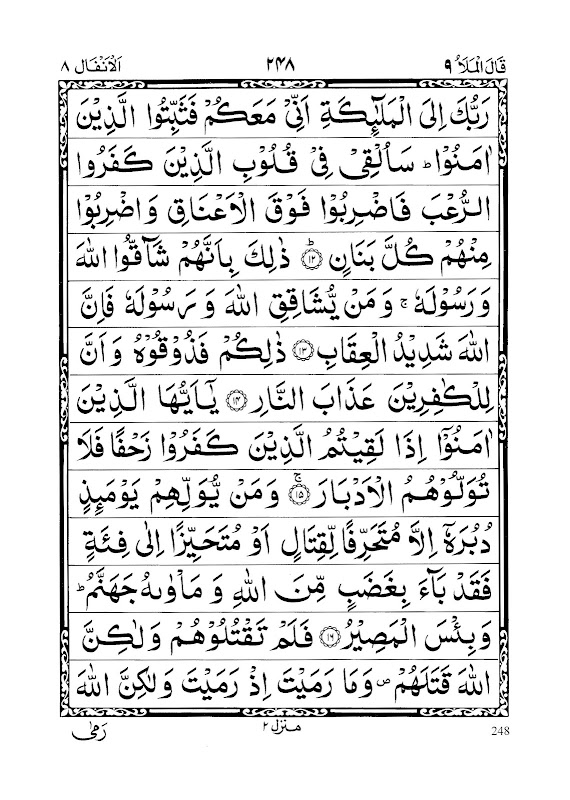 قَالَ الْمَلَاُ ٩ ٢٤٨ اَلْاَنْفَال ٨
رَبُّكَ اِلَى الْمَلٰٓئِكَةِ اَنِّىْ مَعَكُمْ فَثَبِّتُوا الَّذِيْنَ
اٰمَنُوْا ؕ سَاُلْقِىْ فِىْ قُلُوْبِ الَّذِيْنَ كَفَرُوا
الرُّعْبَ فَاضْرِبُوْا فَوْقَ الْاَعْنَاقِ وَاضْرِبُوْا
مِنْهُمْ كُلَّ بَنَانٍ ؕ ۝١٢ ذٰلِكَ بِاَنَّهُمْ شَآقُّوا اللّٰهَ
وَرَسُوْلَهٗ ۚ وَمَنْ يُّشَاقِقِ اللّٰهَ وَرَسُوْلَهٗ فَاِنَّ
اللّٰهَ شَدِيْدُ الْعِقَابِ ۝١٣ ذٰلِكُمْ فَذُوْقُوْهُ وَاَنَّ
لِلْكٰفِرِيْنَ عَذَابَ النَّارِ ۝١٤ يٰۤاَيُّهَا الَّذِيْنَ
اٰمَنُوْۤا اِذَا لَقِيْتُمُ الَّذِيْنَ كَفَرُوْا زَحْفًا فَلَا
تُوَلُّوْهُمُ الْاَدْبَارَ ۚ ۝١٥ وَمَنْ يُّوَلِّهِمْ يَوْمَئِذٍ
دُبُرَهٗۤ اِلَّا مُتَحَرِّفًا لِّقِتَالٍ اَوْ مُتَحَيِّزًا اِلٰى فِئَةٍ
فَقَدْ بَآءَ بِغَضَبٍ مِّنَ اللّٰهِ وَ مَاْوٰىهُ جَهَنَّمُ ؕ
وَبِئْسَ الْمَصِيْرُ ۝١٦ فَلَمْ تَقْتُلُوْهُمْ وَلٰكِنَّ
اللّٰهَ قَتَلَهُمْ ۪ وَمَا رَمَيْتَ اِذْ رَمَيْتَ وَلٰكِنَّ اللّٰهَ
رَمٰى منزل ٢ 248